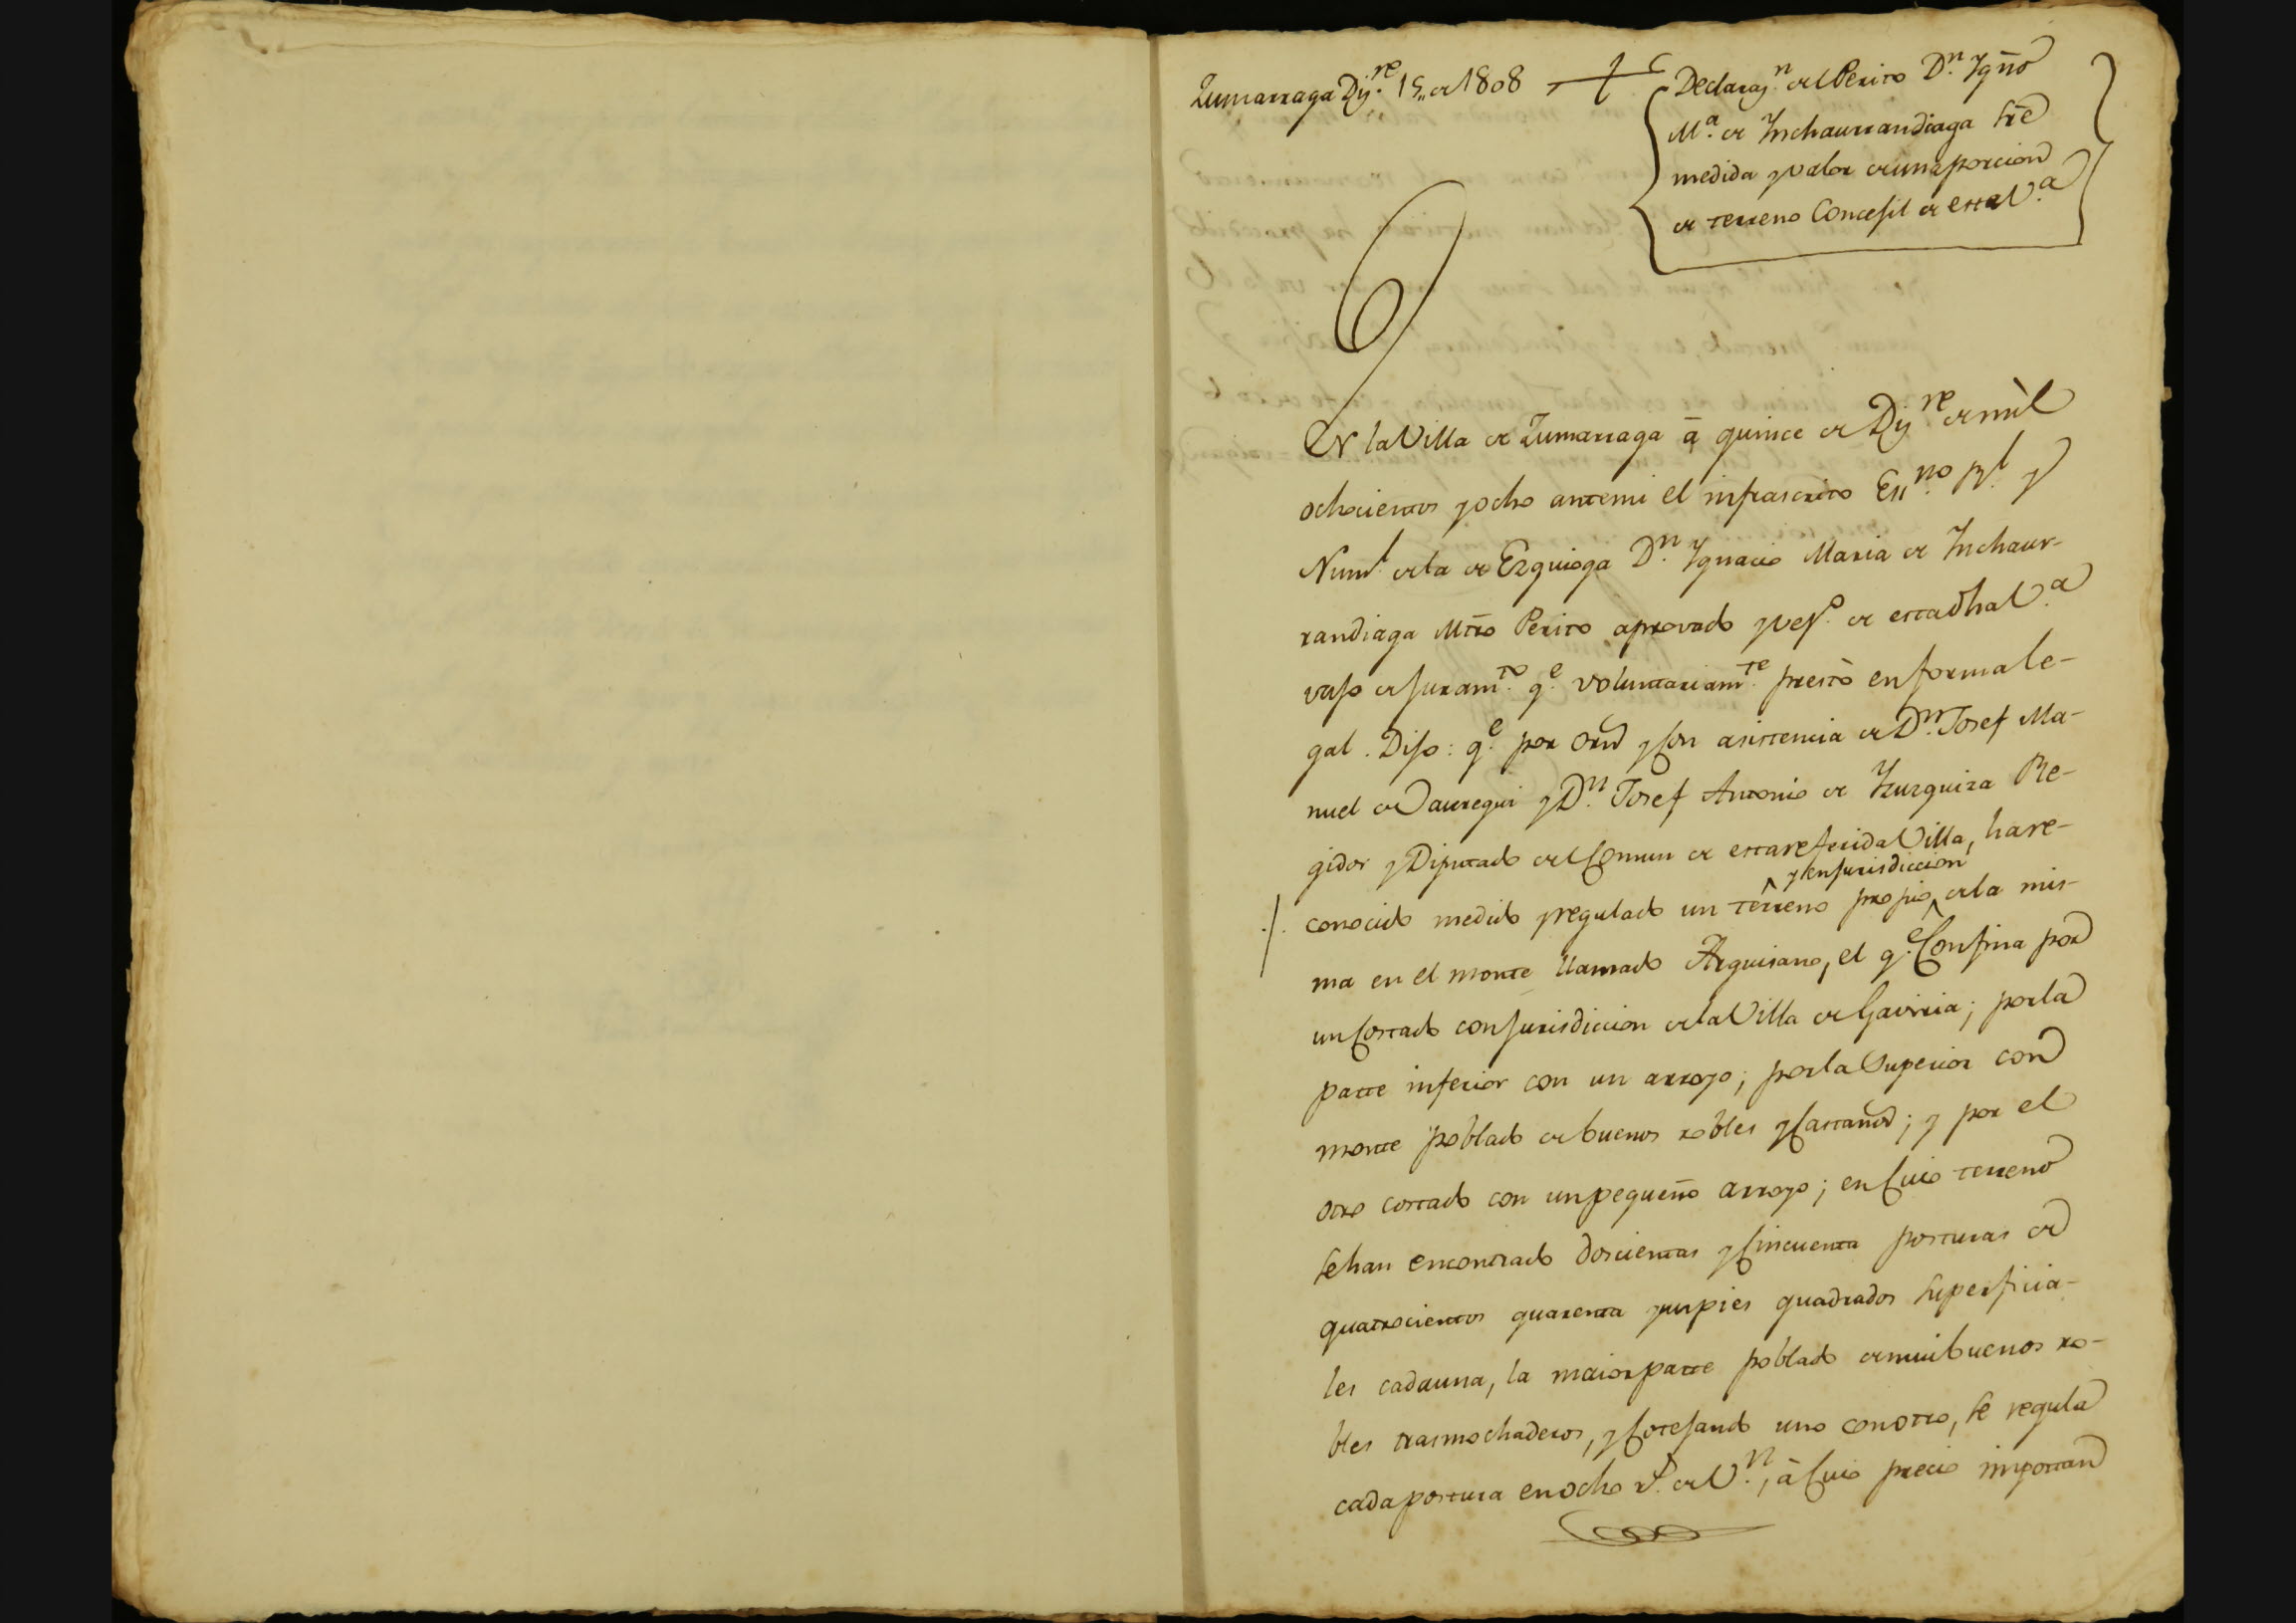 Zumarraga Diz.re 15,, de 1808
Declaraz.n del Perito D.n Ygño
M.a de Ynchaurrandiaga sre
medida y valor de una porcion
de terreno Concejil de esta V.a
EN la Villa de Zumarraga â quince de Diz.re de mil
ochocientos y ocho ante mi el infrascrito Ess.no R.l y
Num.l de la de Ezquioga D.n Ygnacio Maria de Ynchaur-
randiaga Mtro Perito aprovado y vez.o de esta dha V.a
vajo de juram.to q.e voluntariam.te prestò en forma le-
gal. Dijo: q.e por orñ y con asistencia de D.n Josef Ma-
nuel de Jauregui y D.n Josef Antonio de Yzuzquiza Re-
gidor y Diputado del Comun de esta referida Villa, ha re-
y en jurisdiccion
conocido medido y regulado un terreno propio de la mis-
ma en el monte llamado Arguisano, el q.e Confina por
un Costado con jurisdiccion de la Villa de Gaviria; por la
parte inferior con un arroyo; por la Superior con
monte poblado de buenos robles y Castaños; y por el
otro costado con un pequeño arroyo; en Cuio terreno
se han encontrado doscientas y Cincuenta posturas de
quatrocientos quarenta y un pies quadrados superficia-
les cada una, la maior parte poblado de mui buenos ro-
bles trasmochaderos, y Cotejando uno con otro, se regula
cada postura en ocho r.s de V.n, â Cuio precio importan